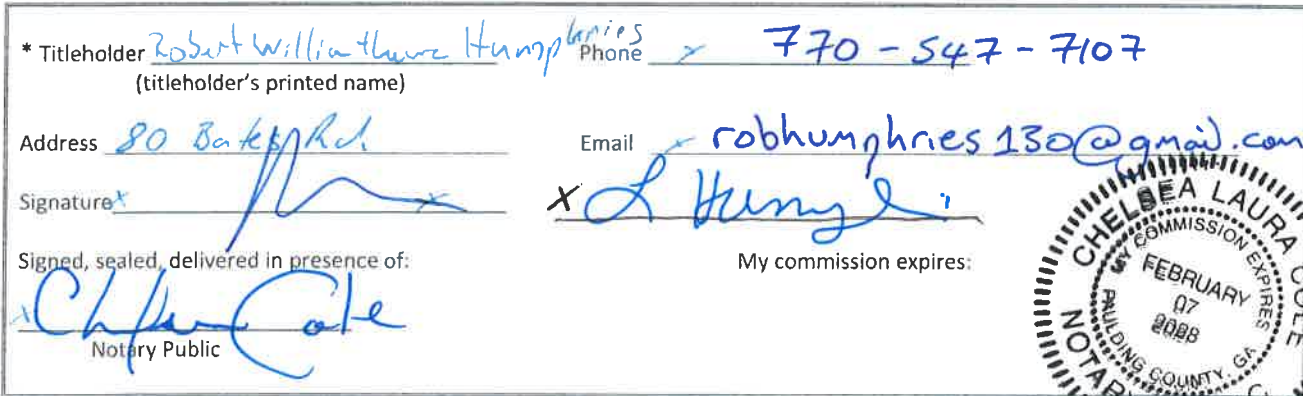 * Titleholder Robert William Humphries Phone x 770-547-7107
(titleholder's printed name)
Address 80 Bates Rd. Email x robhumphries130@gmail.com
Signature x x X L Humphries
Signed, sealed, delivered in presence of: My commission expires:
x Chelsea Cole
Notary Public
CHELSEA LAURA COLE
NOTARY
MY COMMISSION EXPIRES
FEBRUARY
07
2028
PAULDING COUNTY, GA